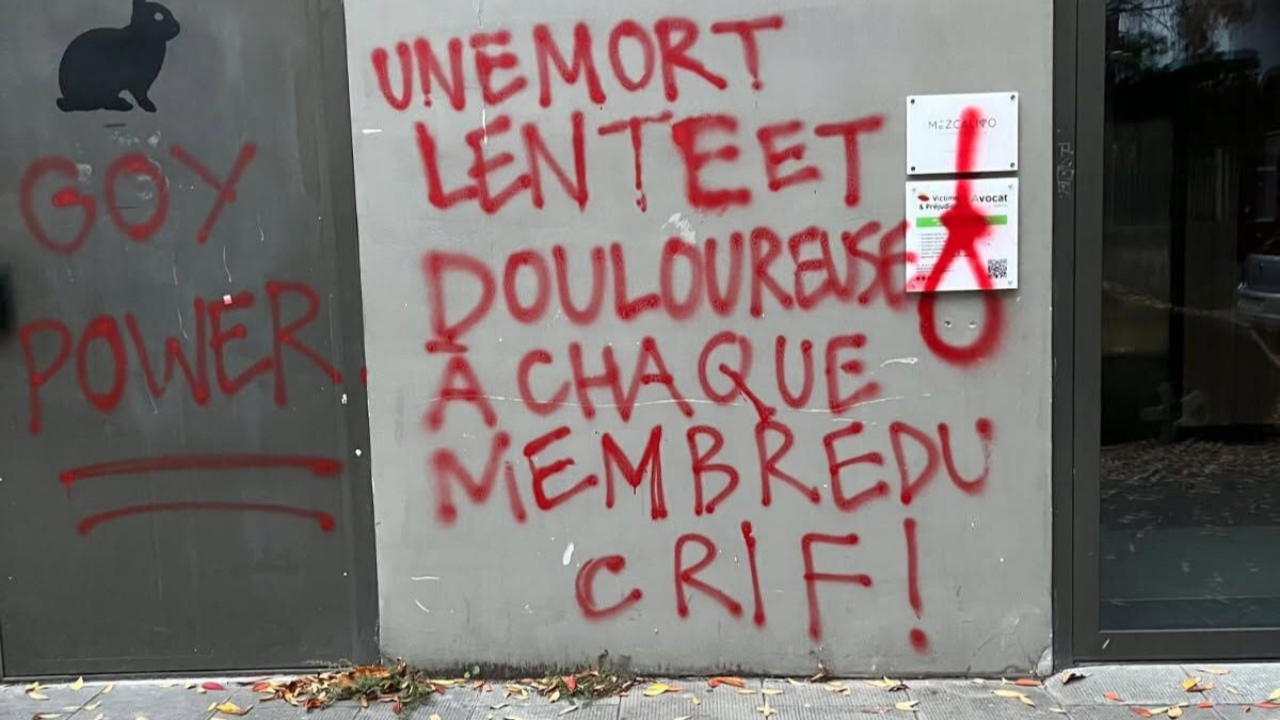 GOY
POWER.
UNE MORT
LENTE ET
DOULOUREUSE
À CHAQUE
MEMBRE DU
CRIF !
MEZCALITO
Victimes Avocat
& Préjudices